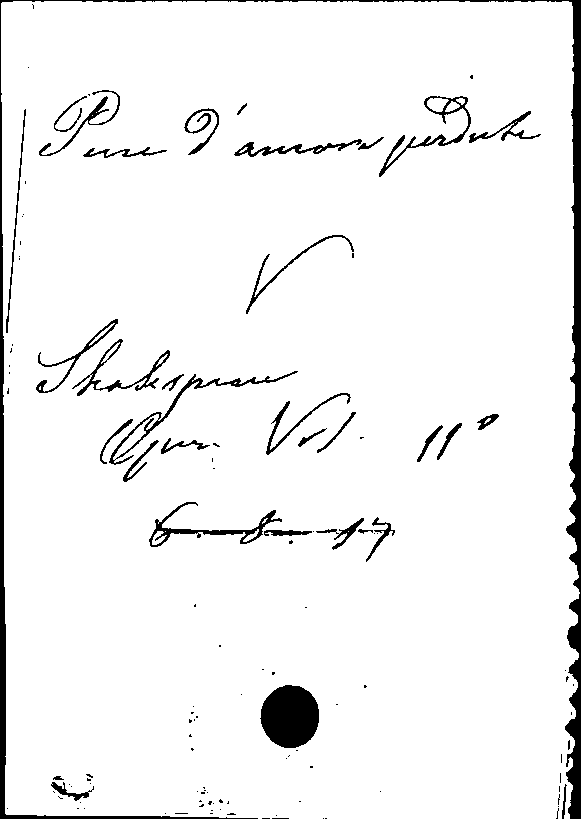 Pene d'amore perdute
V
Shakespeare
Opere Vol. 11°
6. 8. 17